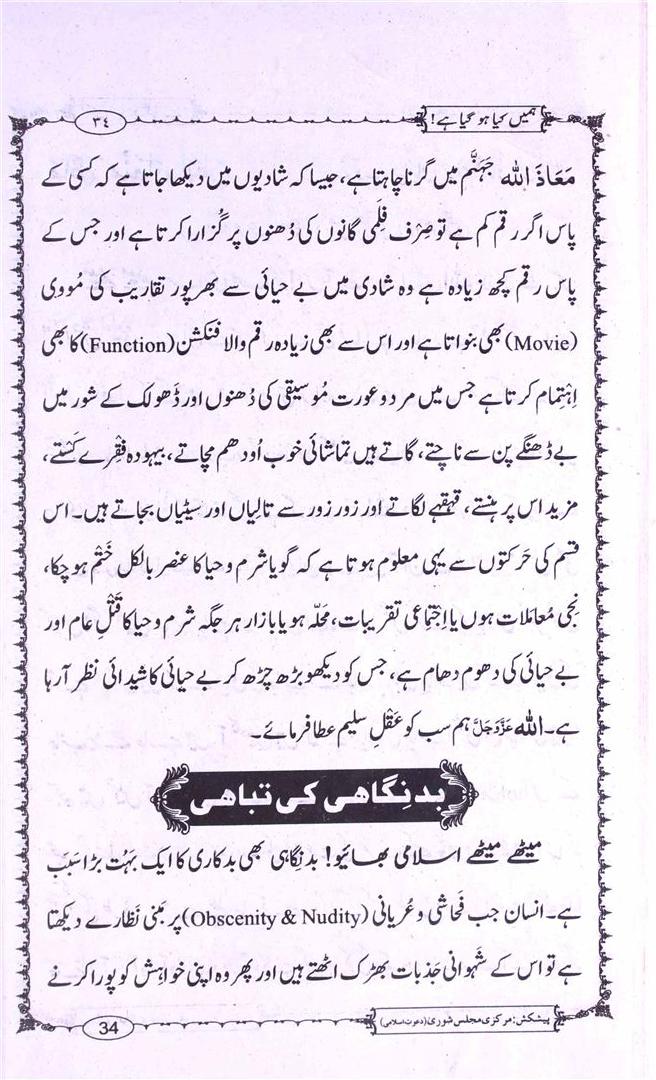 ہمیں کیا ہو گیا ہے! ٣٤
مَعَاذَ اللہ جَہَنَّم میں گرنا چاہتا ہے، جیسا کہ شادیوں میں دیکھا جاتا ہے کہ کسی کے
پاس اگر رقم کم ہے تو صِرف فِلمی گانوں کی دُھنوں پر گُزارا کرتا ہے اور جس کے
پاس رقم کچھ زیادہ ہے وہ شادی میں بے حیائی سے بھرپور تقاریب کی مُووی
(Movie) بھی بنواتا ہے اور اس سے بھی زیادہ رقم والا فنکشن (Function) کا بھی
اِہتِمام کرتا ہے جس میں مرد و عورت مُوسیقی کی دُھنوں اور ڈھولک کے شور میں
بے ڈھنگے پن سے ناچتے، گاتے ہیں تماشائی خوب اُودھم مچاتے، بیہودہ فِقرے کَستے،
مزید اس پر ہنستے، قہقہے لگاتے اور زور زور سے تالیاں اور سیٹیاں بجاتے ہیں۔ اس
قسم کی حَرکتوں سے یہی معلوم ہوتا ہے کہ گویا شرم و حیا کا عنصر بالکل خَتْم ہو چکا،
نِجی مُعاملات ہوں یا اِجتِماعی تقریبات، مَحَلّہ ہو یا بازار ہر جگہ شرم و حیا کا قتلِ عام اور
بے حیائی کی دھوم دھام ہے، جس کو دیکھو بڑھ چڑھ کر بے حیائی کا شیدائی نظر آرہا
ہے۔ اللہ عَزَّوَجَلَّ ہم سب کو عَقْلِ سلیم عطا فرمائے۔
بدنگاهی کی تباهی
میٹھے میٹھے اسلامی بھائیو! بدنِگاہی بھی بدکاری کا ایک بہُت بڑا سبَب
ہے۔ انسان جب فَحاشی و عُریانی (Obscenity & Nudity) پر مَبنی نَظارے دیکھتا
ہے تو اس کے شَہوانی جَذبات بھڑک اٹھتے ہیں اور پھر وہ اپنی خواہش کو پورا کرنے
پیشکش: مرکزی مجلسِ شوریٰ (دعوتِ اسلامی) 34